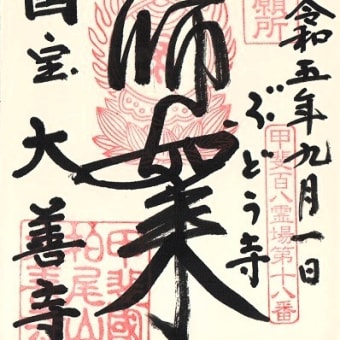 令和五年九月一日
ぶどう寺
甲斐百八霊場第十八番
願所
師如来
国宝 大善寺
甲斐國
柏尾山